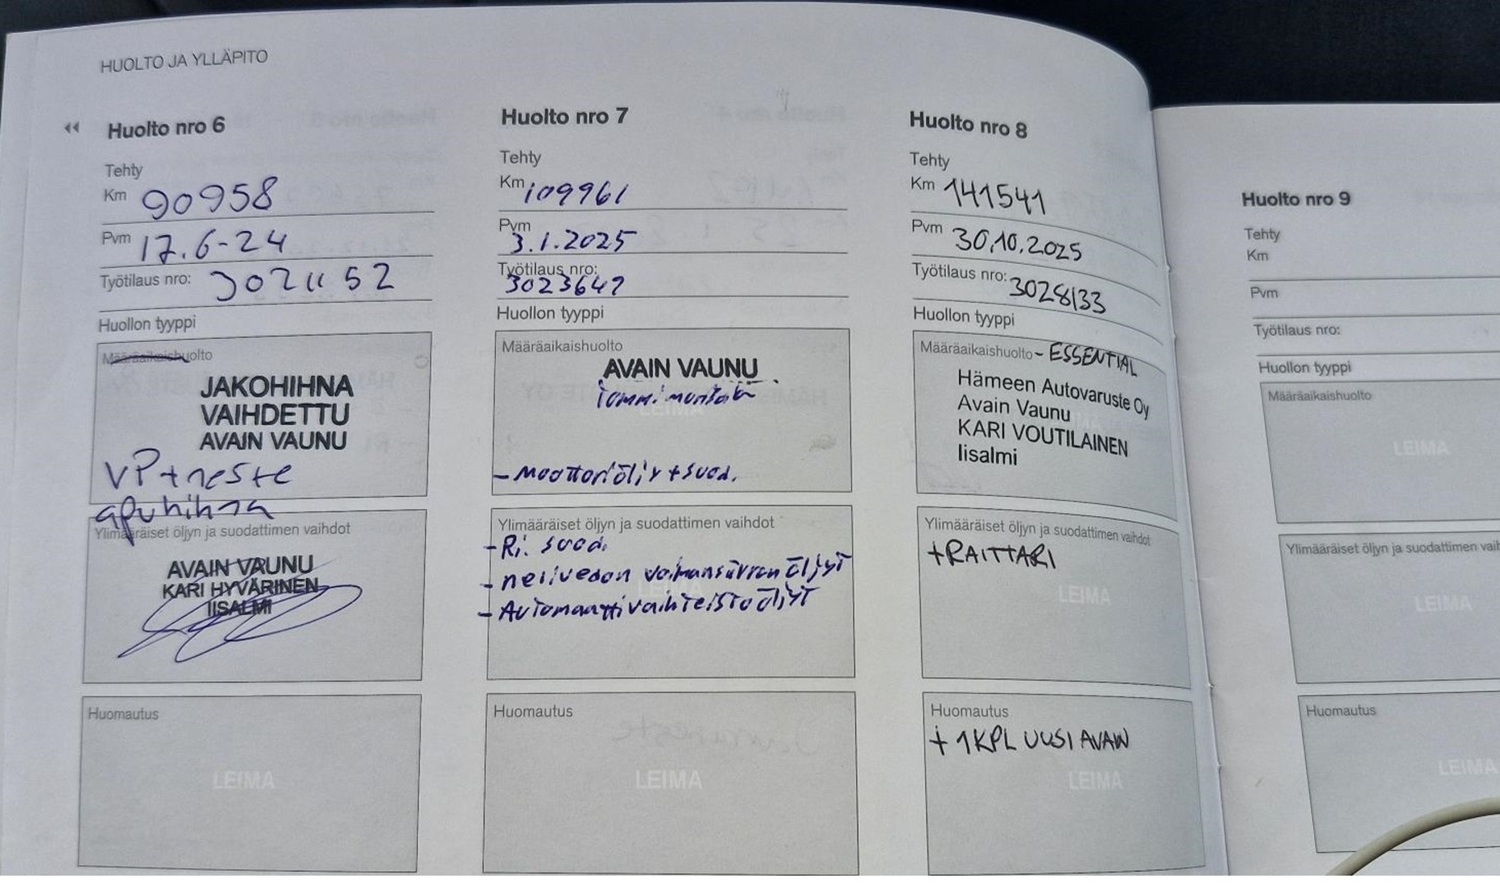 HUOLTO JA YLLÄPITO
Huolto nro 6
Tehty
Km 90958
Pvm 17.6-24
Työtilaus nro: 3021152
Huollon tyyppi
Määräaikaishuolto
JAKOHIHNA
VAIHDETTU
AVAIN VAUNU
VP+neste
apuhihna
Ylimääräiset öljyn ja suodattimen vaihdot
AVAIN VAUNU
KARI HYVÄRINEN
IISALMI
Huomautus
LEIMA
Huolto nro 7
Tehty
Km 109961
Pvm 3.1.2025
Työtilaus nro: 3023647
Huollon tyyppi
Määräaikaishuolto
AVAIN VAUNU
LEIMA
- Moottoriöljy + suod.
Ylimääräiset öljyn ja suodattimen vaihdot
- Ri. suod.
- nelivedon voimansiirron öljyt
- Automaattivaihteistoöljyt
Huomautus
LEIMA
Huolto nro 8
Tehty
Km 141541
Pvm 30.10.2025
Työtilaus nro: 3028133
Huollon tyyppi
Määräaikaishuolto - ESSENTIAL
Hämeen Autovaruste Oy
Avain Vaunu
KARI VOUTILAINEN
Iisalmi
Ylimääräiset öljyn ja suodattimen vaihdot
+RAITTARI
LEIMA
Huomautus
+ 1KPL UUSI AVAIN
LEIMA
Huolto nro 9
Tehty
Km
Pvm
Työtilaus nro:
Huollon tyyppi
Määräaikaishuolto
LEIMA
Ylimääräiset öljyn ja suodattimen vaih
LEIMA
Huomautus
LEIMA